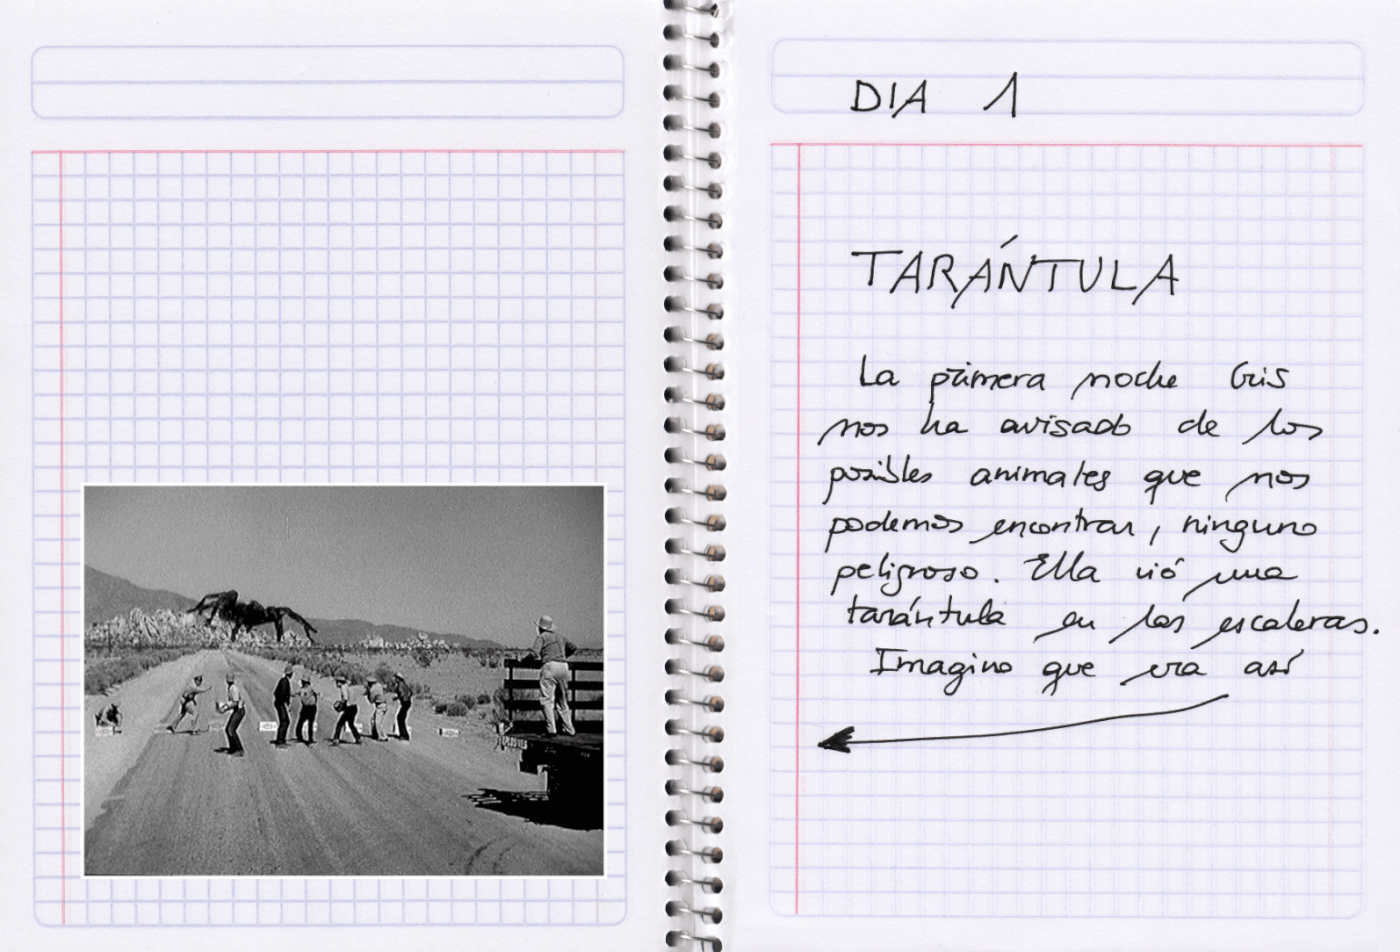 DIA 1
TARÁNTULA
La primera noche Gris
nos ha avisado de los
posibles animales que nos
podemos encontrar, ninguno
peligroso. Ella vió una
tarántula en las escaleras.
Imagino que era así